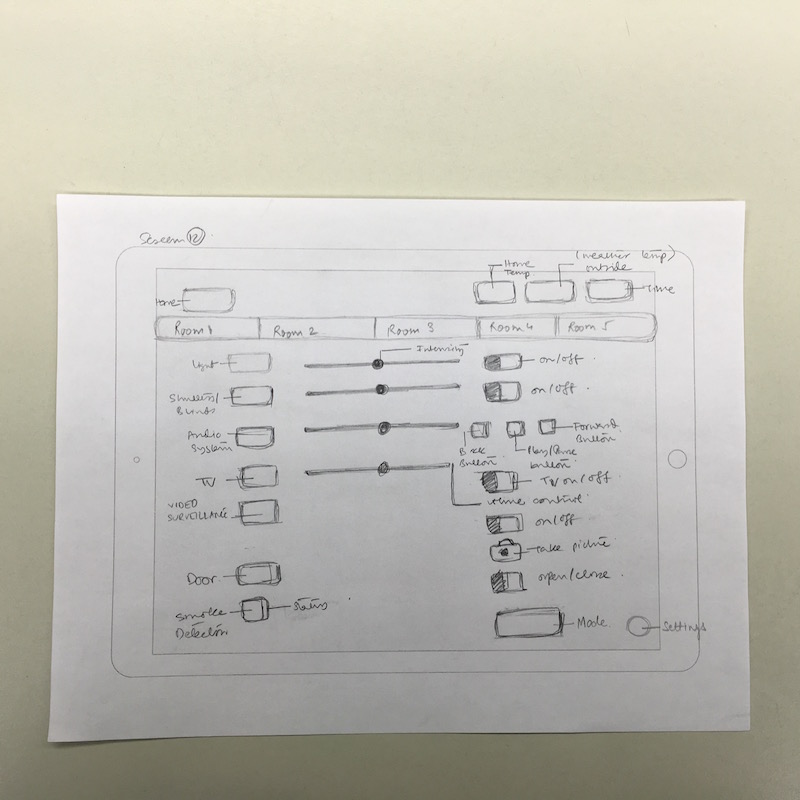 Screen 12
(weather temp)
outside
Home
Temp
Home
Time
Room 1
Room 2
Room 3
Room 4
Room 5
Light
Intensity
on/off
Shutters/
Blinds
on/off
Audio
System
Back
Button
Play/Pause
button
Forward
Button
TV
TV on/off
volume control
VIDEO
SURVEILLANCE
on/off
take picture
Door
open/close
Smoke
Detector
Status
Mode
Settings